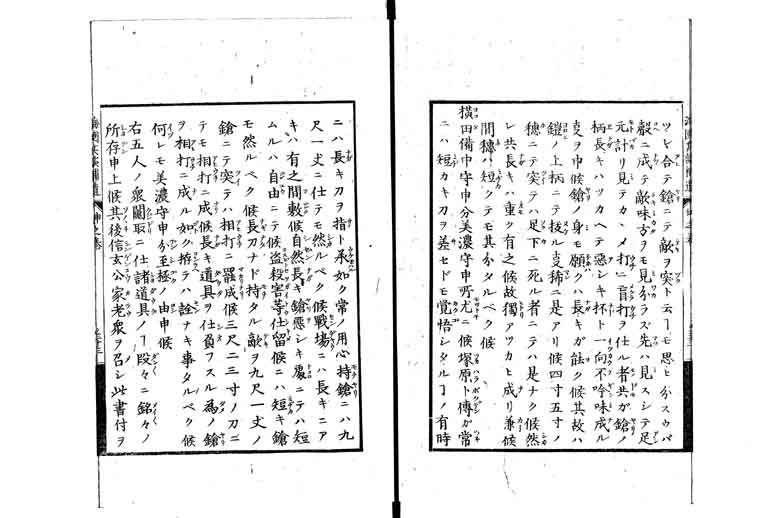 ツレ合テ鎗ニテ敵ヲ突ト云フヿモ思ヒ分スウバ
聲ニ成テ敵味方ヲモ見分ラズ先ハ見スシテ足
元計リ見テカヽメ打ニ盲打ヲ仕ル者共ガ鎗ノ
柄長キハツカヘテ悪シキ杯ト一向不吟味成ル
支ヲ申候鎗ノ身モ願クハ長キガ能ク候其故ハ
鎧ノ上柄ニテ拔ル支稀ニ是アリ候四寸五寸ノ
穗ニテ突テハ足下ニ死ル者ニテハ是ナク候然
レ共長キハ重ク有之候故獨アツカヒ成リ兼候
間穗ハ短クテモ其分タルベク候
横田備中守申分美濃守申所尤ニ候塚原卜傳ガ常
ニハ短カキ刀ヲ差セドモ覺悟シタルヿノ有時
ニハ長キ刀ヲ指ト承如ク常ノ用心持鎗ニハ九
尺一丈ニ仕テモ然ルベク候戰場ニハ長キニア
キハ有之間敷候自然長キ鎗悪シキ處ニテハ短
ムルハ自由ニテ候盗殺害等仕留候ニハ短キ鎗
モ然ルベク候長刀ナド持タル敵ヲ九尺一丈ノ
鎗ニテ突テハ相打ニ罷成候三尺二三寸ノ刀ニ
テモ相打ニ成候長キ道具ヲ仕負フスル為ノ鎗
ヲ相打ニ成ル如ク拵テハ詮ナキ事タルベク候
何レモ美濃守申分至極ノ由申候
右五人ノ衆鬮取ニ仕諸道具ノヿ段々ニ銘々ノ
所存申上候其後信玄公家老衆ヲ召シ此書付ヲ